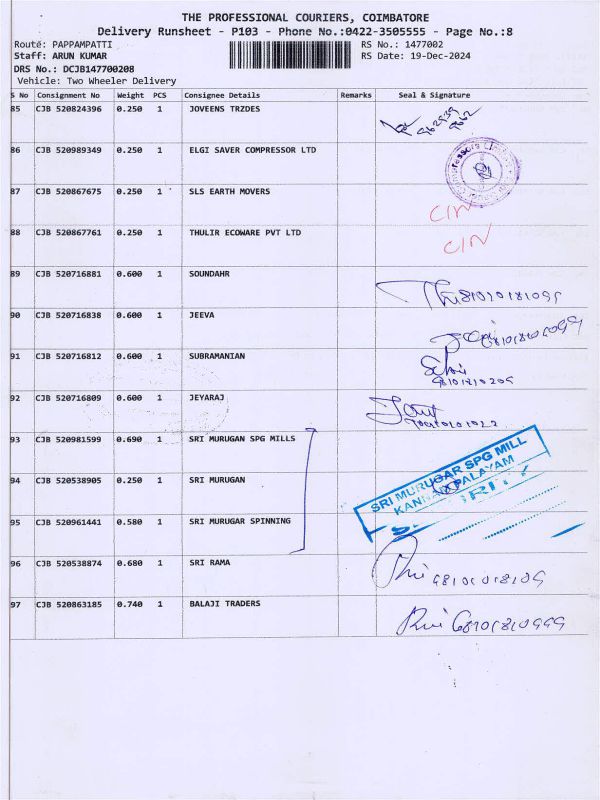 THE PROFESSIONAL COURIERS, COIMBATORE
Delivery Runsheet - P103 - Phone No.:0422-3505555 - Page No.:8
Route: PAPPAMPATTI RS No.: 1477002
Staff: ARUN KUMAR RS Date: 19-Dec-2024
DRS No.: DCJB147700208
Vehicle: Two Wheeler Delivery
S No Consignment No Weight PCS Consignee Details Remarks Seal & Signature
85 CJB 520824396 0.250 1 JOVEENS TRZDES
86 CJB 520989349 0.250 1 ELGI SAVER COMPRESSOR LTD
87 CJB 520867675 0.250 1 SLS EARTH MOVERS CIN
88 CJB 520867761 0.250 1 THULIR ECOWARE PVT LTD CIN
89 CJB 520716881 0.600 1 SOUNDAHR
90 CJB 520716838 0.600 1 JEEVA
91 CJB 520716812 0.600 1 SUBRAMANIAN
92 CJB 520716809 0.600 1 JEYARAJ
93 CJB 520981599 0.690 1 SRI MURUGAN SPG MILLS
94 CJB 520538905 0.250 1 SRI MURUGAN
SRI MURUGAR SPG MILL
95 CJB 520961441 0.580 1 SRI MURUGAR SPINNING
96 CJB 520538874 0.680 1 SRI RAMA
97 CJB 520863185 0.740 1 BALAJI TRADERS